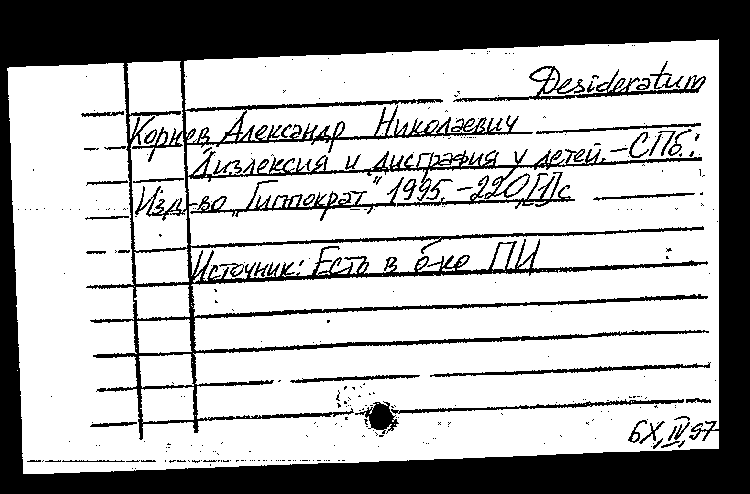 Desideratum
Корнев Александр Николаевич
Дизлексия и дисграфия у детей. – СПб.:
Изд-во "Гиппократ", 1995. – 220,[1]с
Источник: Есть в б-ке ПИ
6X,IV,97